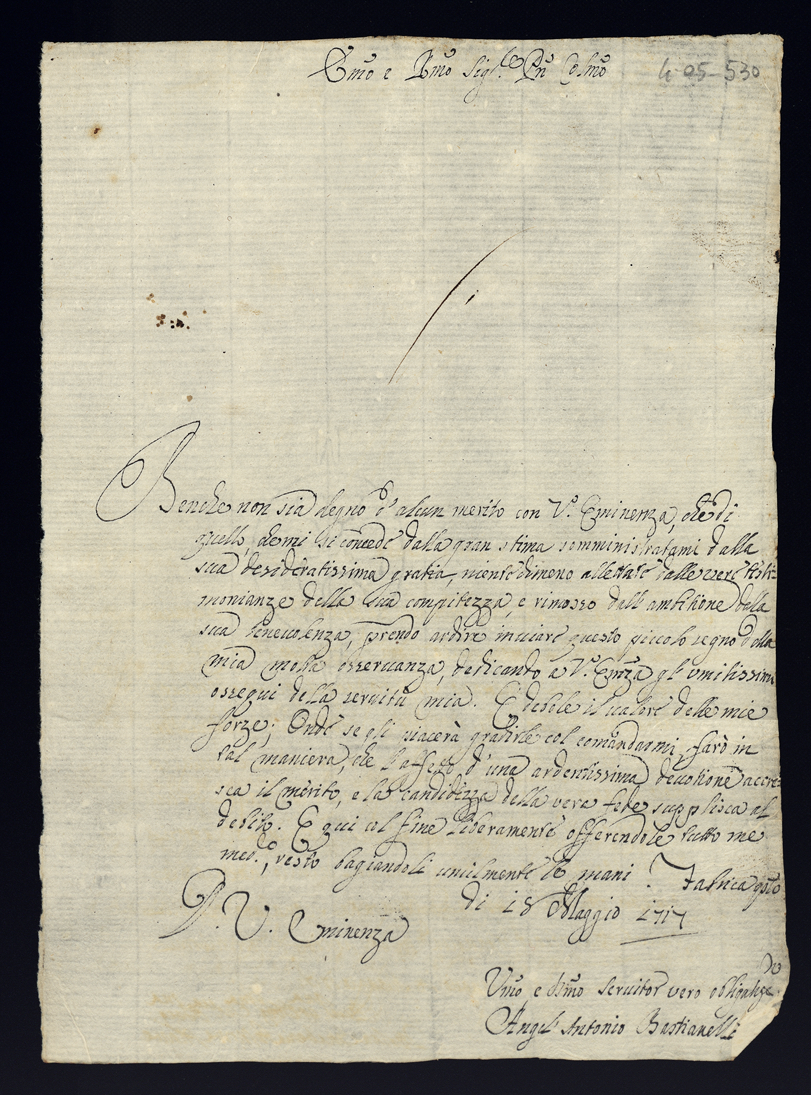 Emo e Rmo Sigre Pn Colmo 405-530
Benche non sia degno d'alcun merito con V.a Eminenza, che di
quello, che mi si concede dalla gran stima somministratami dalla
sua desideratissima gratia, niente dimeno allettato dalle vere testi-
monianze della sua compitezza, e rimosso dall'ambitione della
sua benevolenza, prendo ardire inviare questo piccolo segno della
mia molta osservanza, dedicanto a V.a Emza gl'umilissimi
ossequi della servitù mia. È debole il valore delle mie
forze; Onde se gli piacerà gradirle col comandarmi, farò in
tal maniera, che l'affetto d'una ardentissima devotione accre-
sca il merito, e la candidezza della vera fede supplisca al
debito. E qui al fine liberamente offerendole tutto me
med.o, resto bagiandoli umilmente le mani. Fabrica qsto
di 18 Maggio 1717
D. V. Eminenza
Umo e Dmo servitor vero obligatge
Angel Antonio Bastianelli